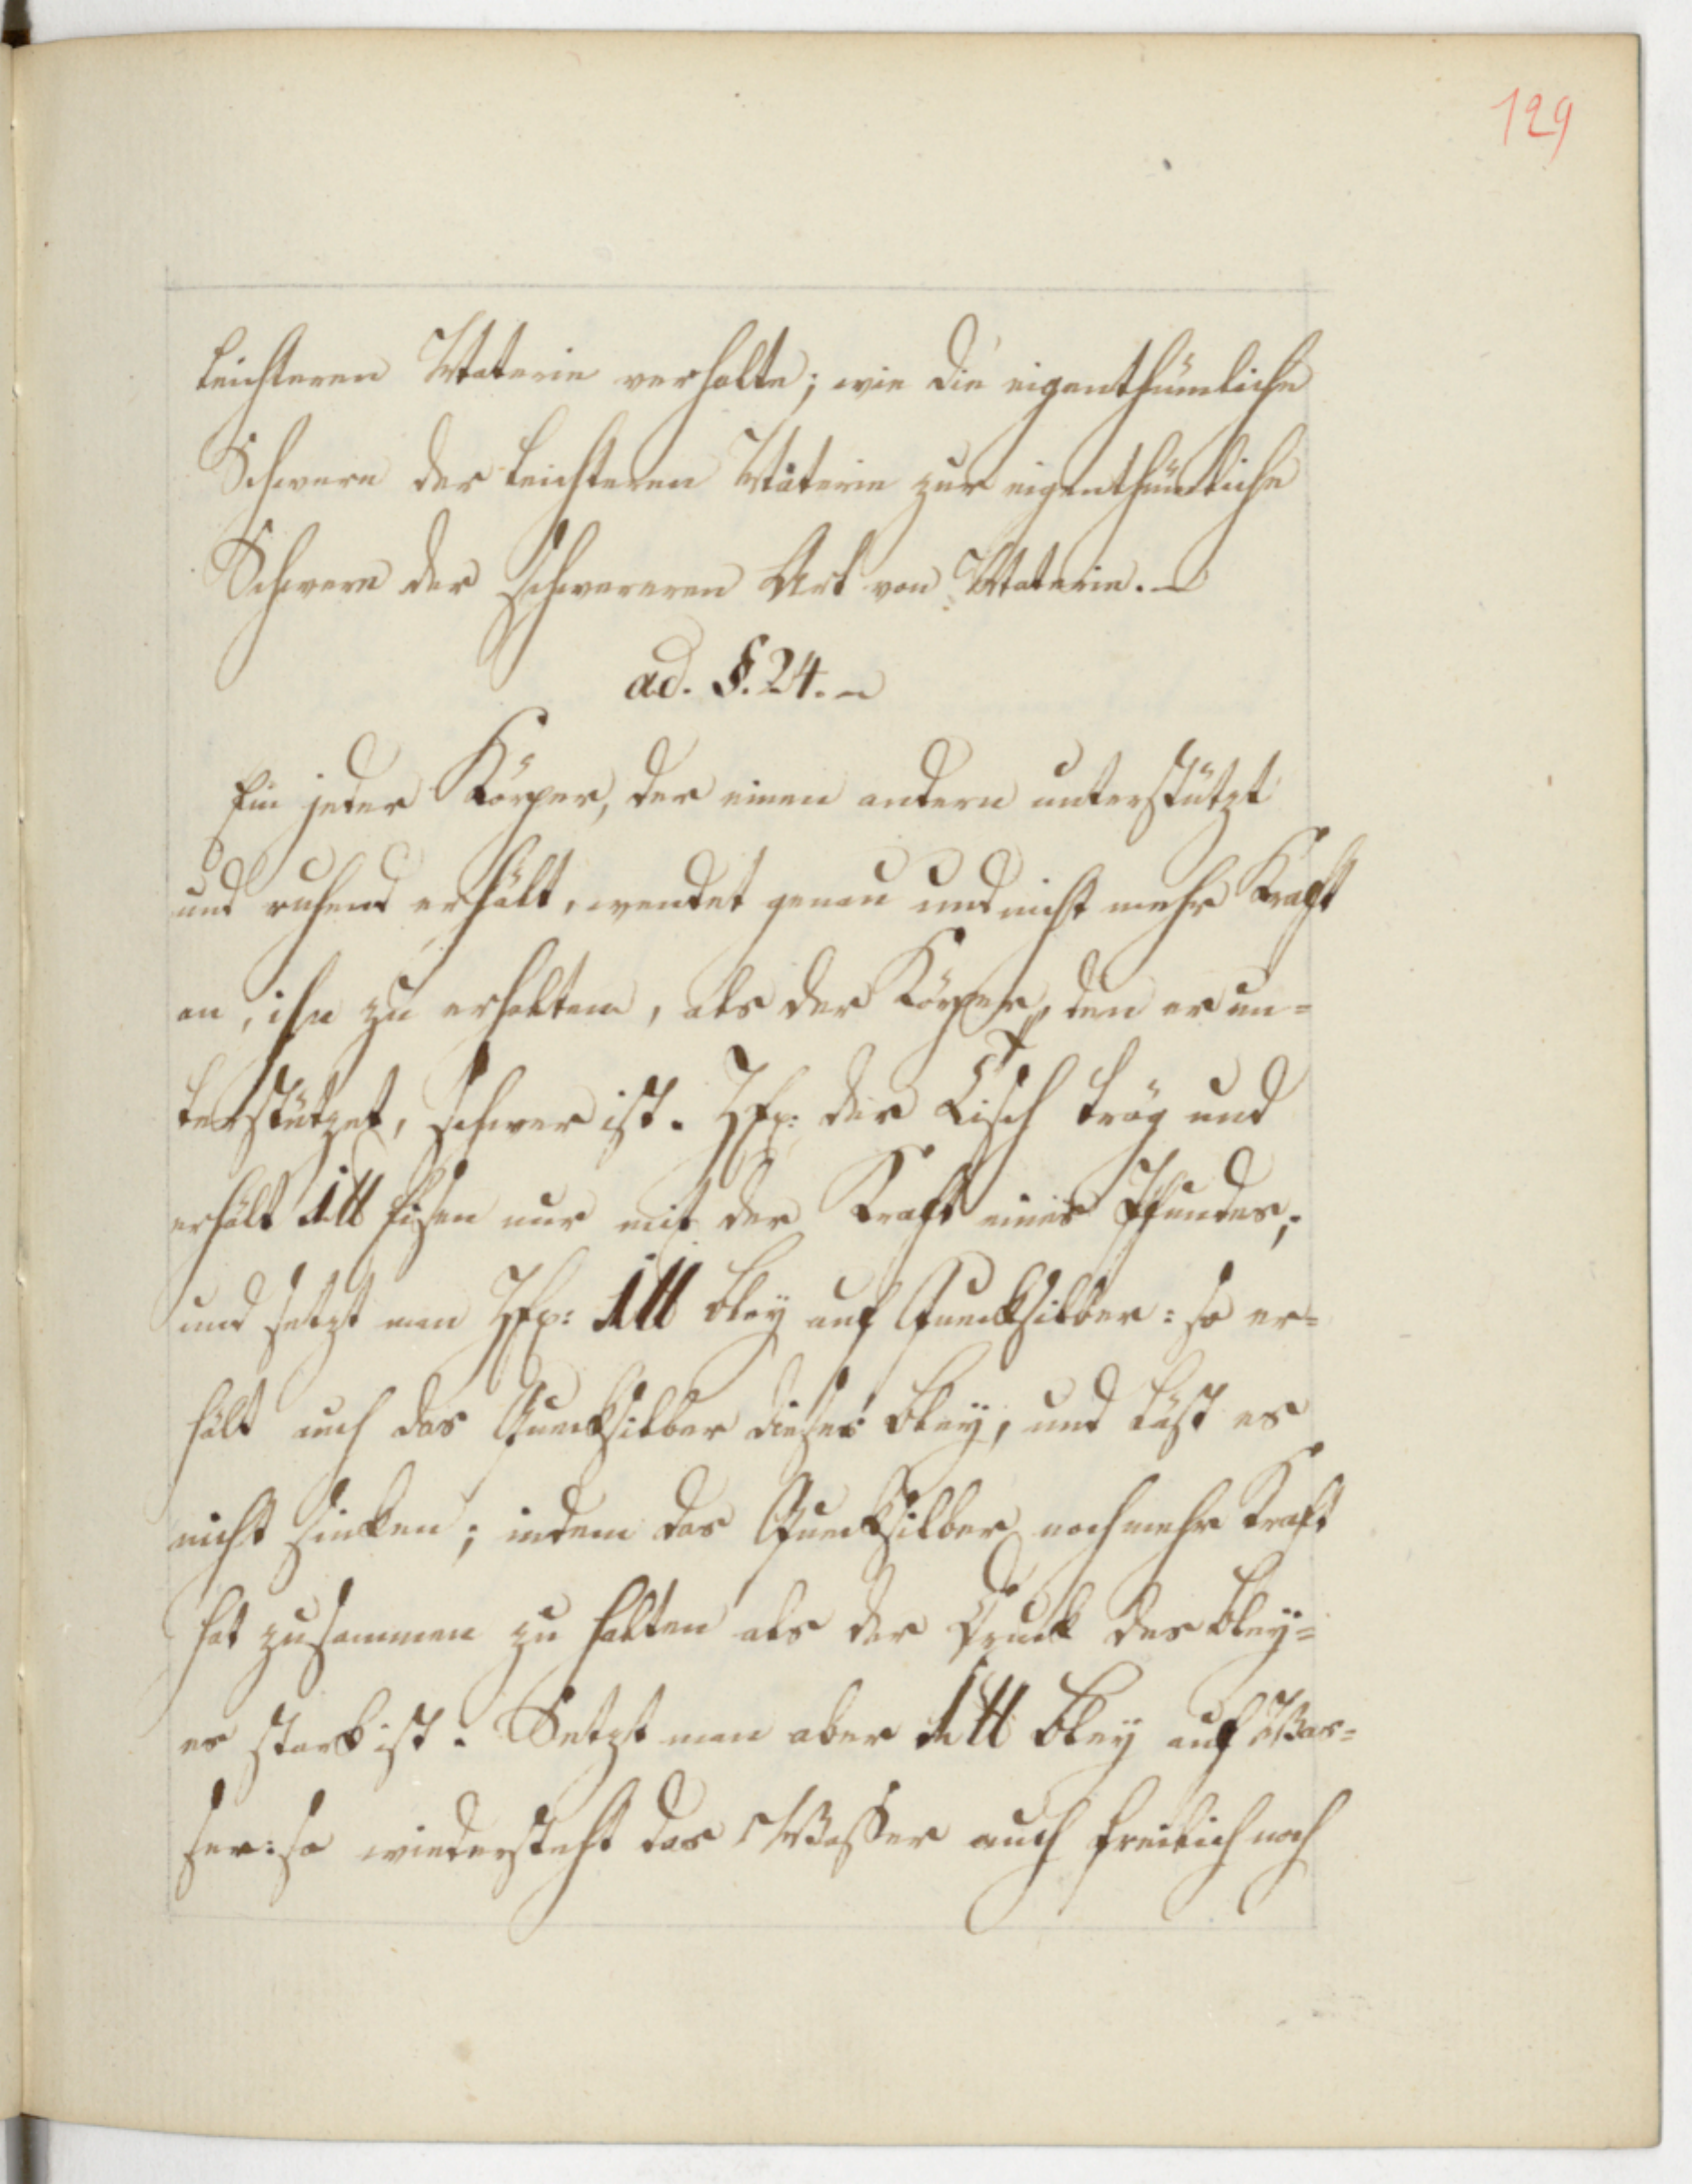 129
leichteren Materie verhalte; wie die eigenthümliche
Schwere der leichteren Materie zur eigenthümliche
Schwere der schwereren Art von Materie. –
ad. §. 24. –
Ein jeder Körper, der einen andern unterstützt
und ruhend erhält, wendet genau und nicht mehr Kraft
an, ihn zu erhalten, als der Körper, den er un=
terstützet, schwer ist. ZEx: der Tisch träg und
erhält 1 ℔ Eisen nur mit der Kraft eines Pfundes;
und setzt man ZEx: 1 ℔ Bley auf Quecksilber: so er=
hält auch das Quecksilber dieses Bley, und läst es
nicht sinken; indem das Quecksilber noch mehr Kraft
hat zusammen zu halten als der Druck des Bley=
es stark ist. Setzt man aber 1 ℔ Bley auf Was=
ser: so wiedersteht das Wasser auch freilich noch